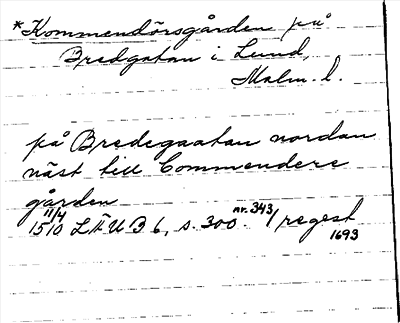 *Kommendörsgården på
Bredgatan i Lund,
Malm. l.
på Bredegaatan nordan
näst till Commendere
gården
11/4 1510 LÄUB 6, s. 300. nr. 343/ regest
1693